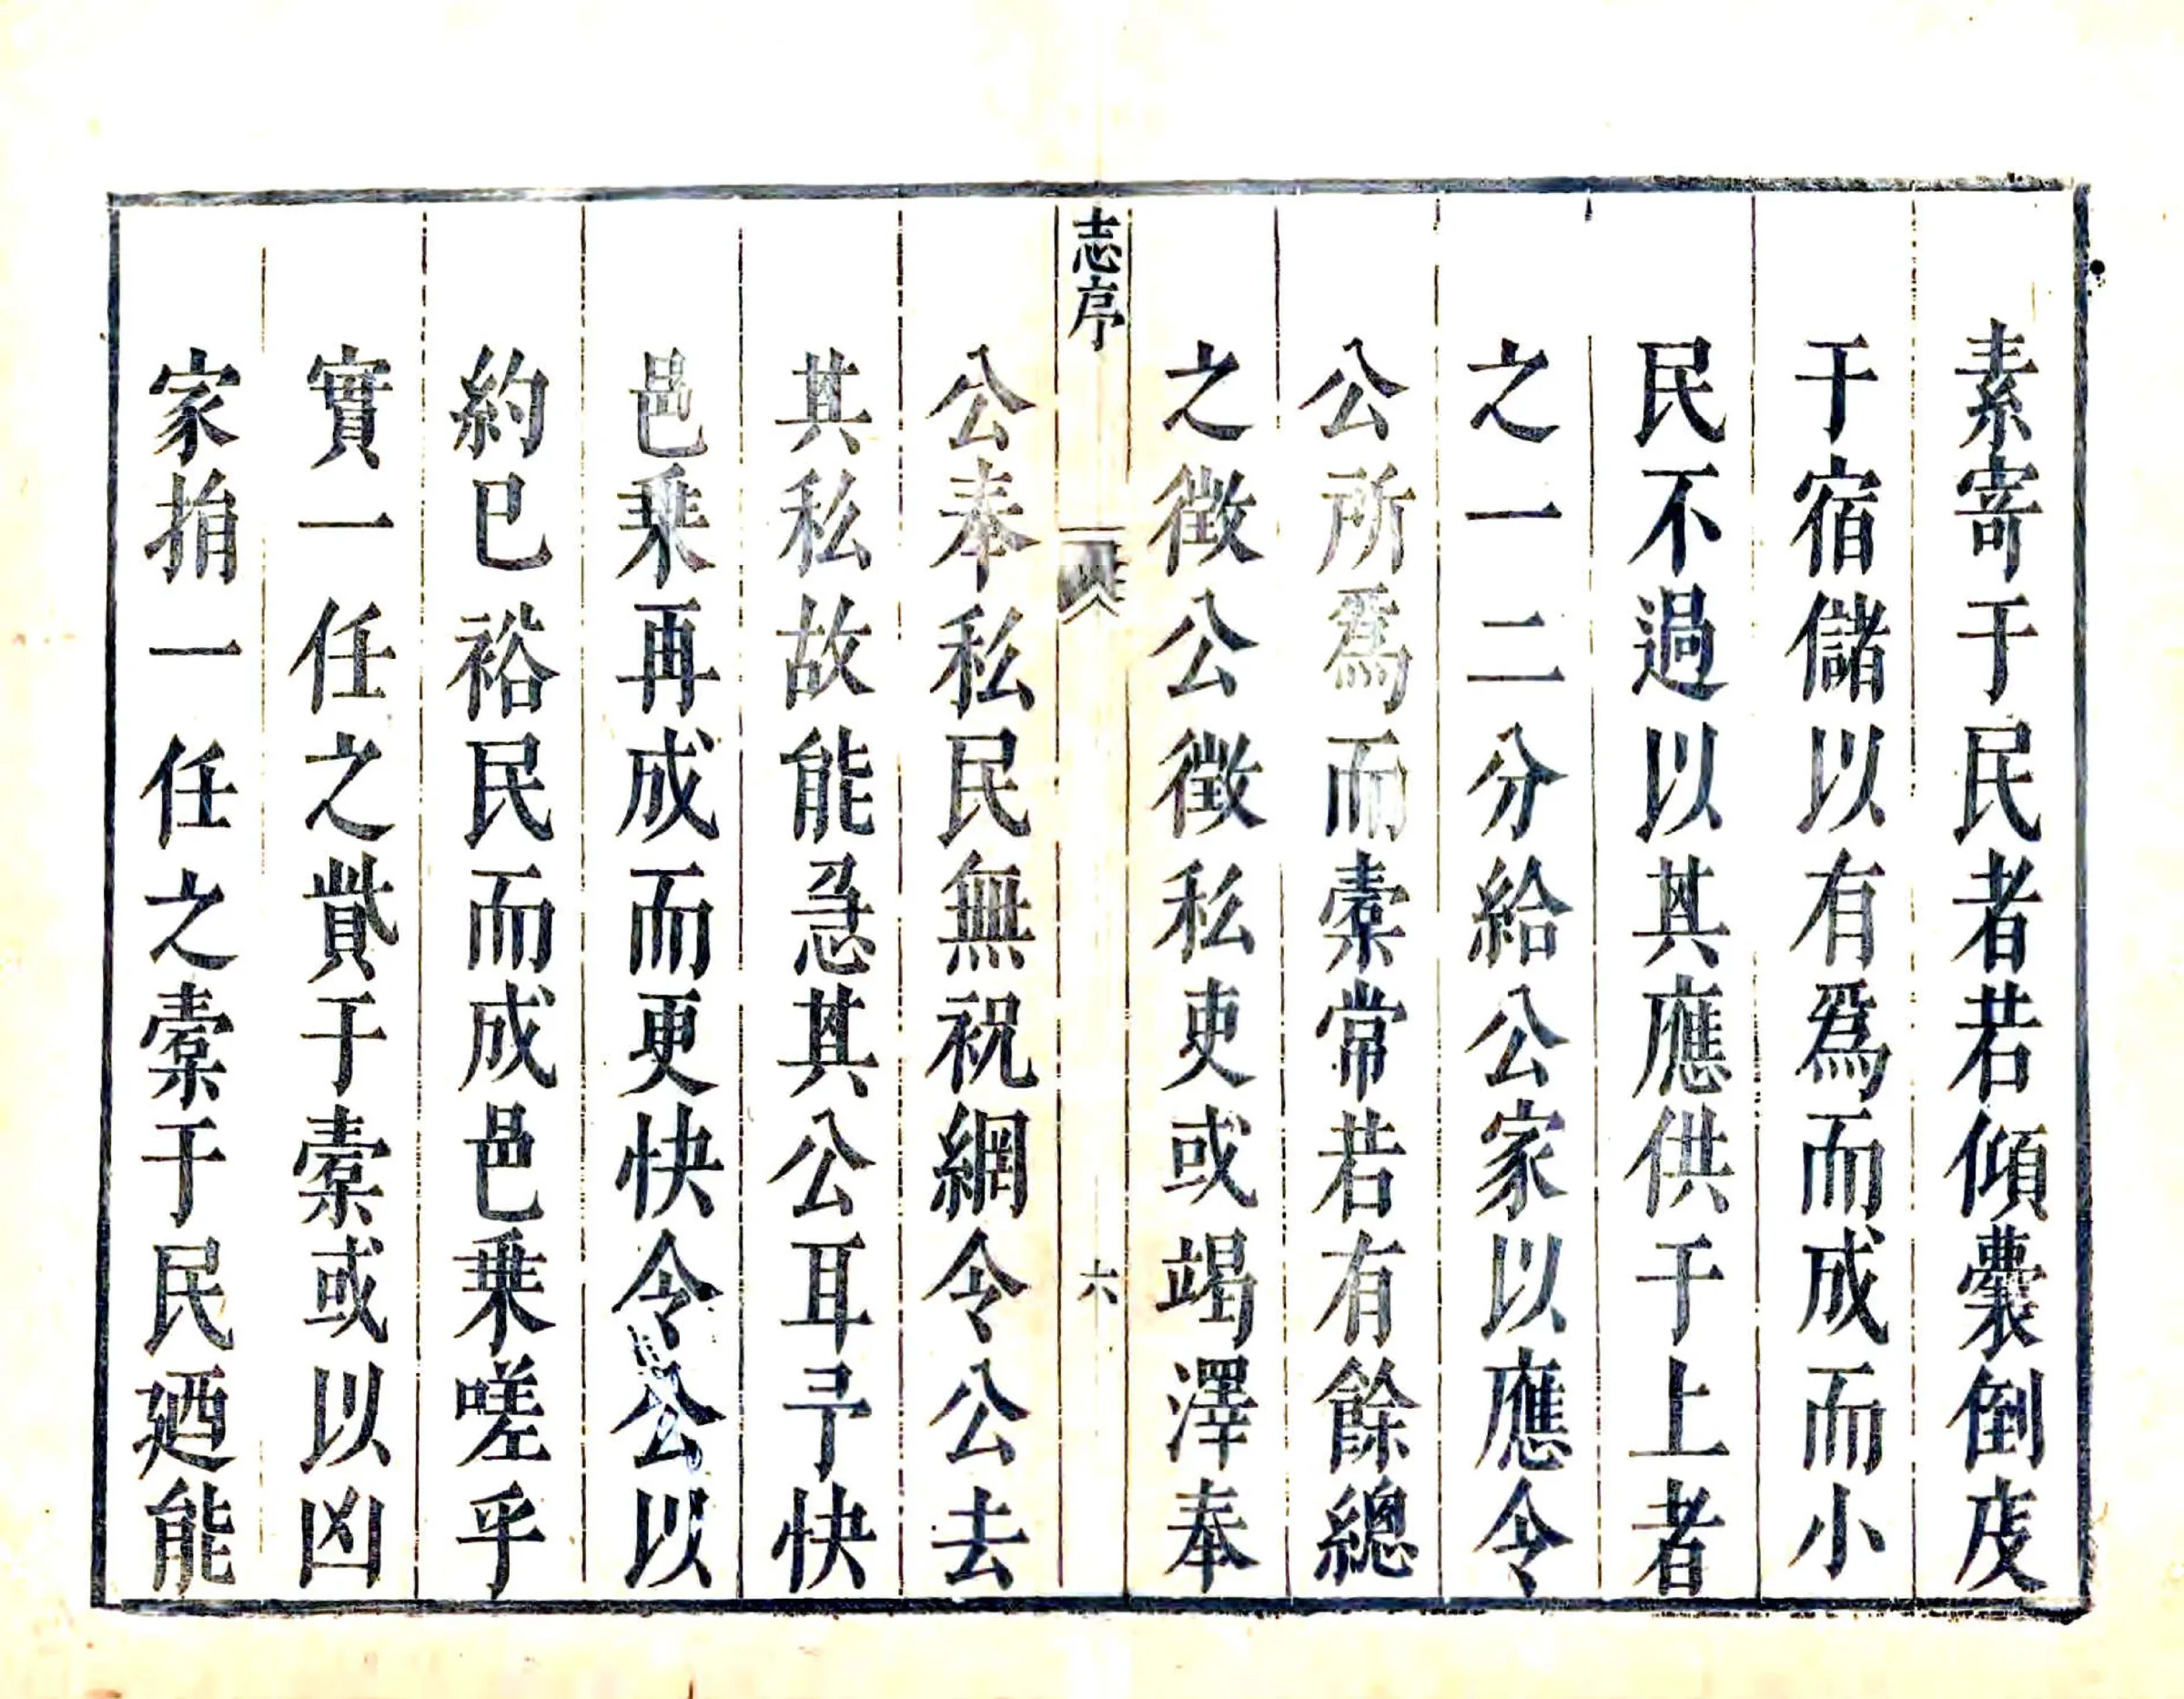 素寄于民者若傾囊倒庋
于宿儲以有爲而成而小
民不過以其應供于上者
之一二分給公家以應令
公所爲而槖常若有餘總
之徵公徵私吏或竭澤奉
志序
六
公奉私民無祝網令公去
其私故能急其公耳予快
邑乗再成而更快令公以
約已裕民而成邑乗嗟乎
實一任之貲于槖或以凶
家捐一任之槖于民廼能